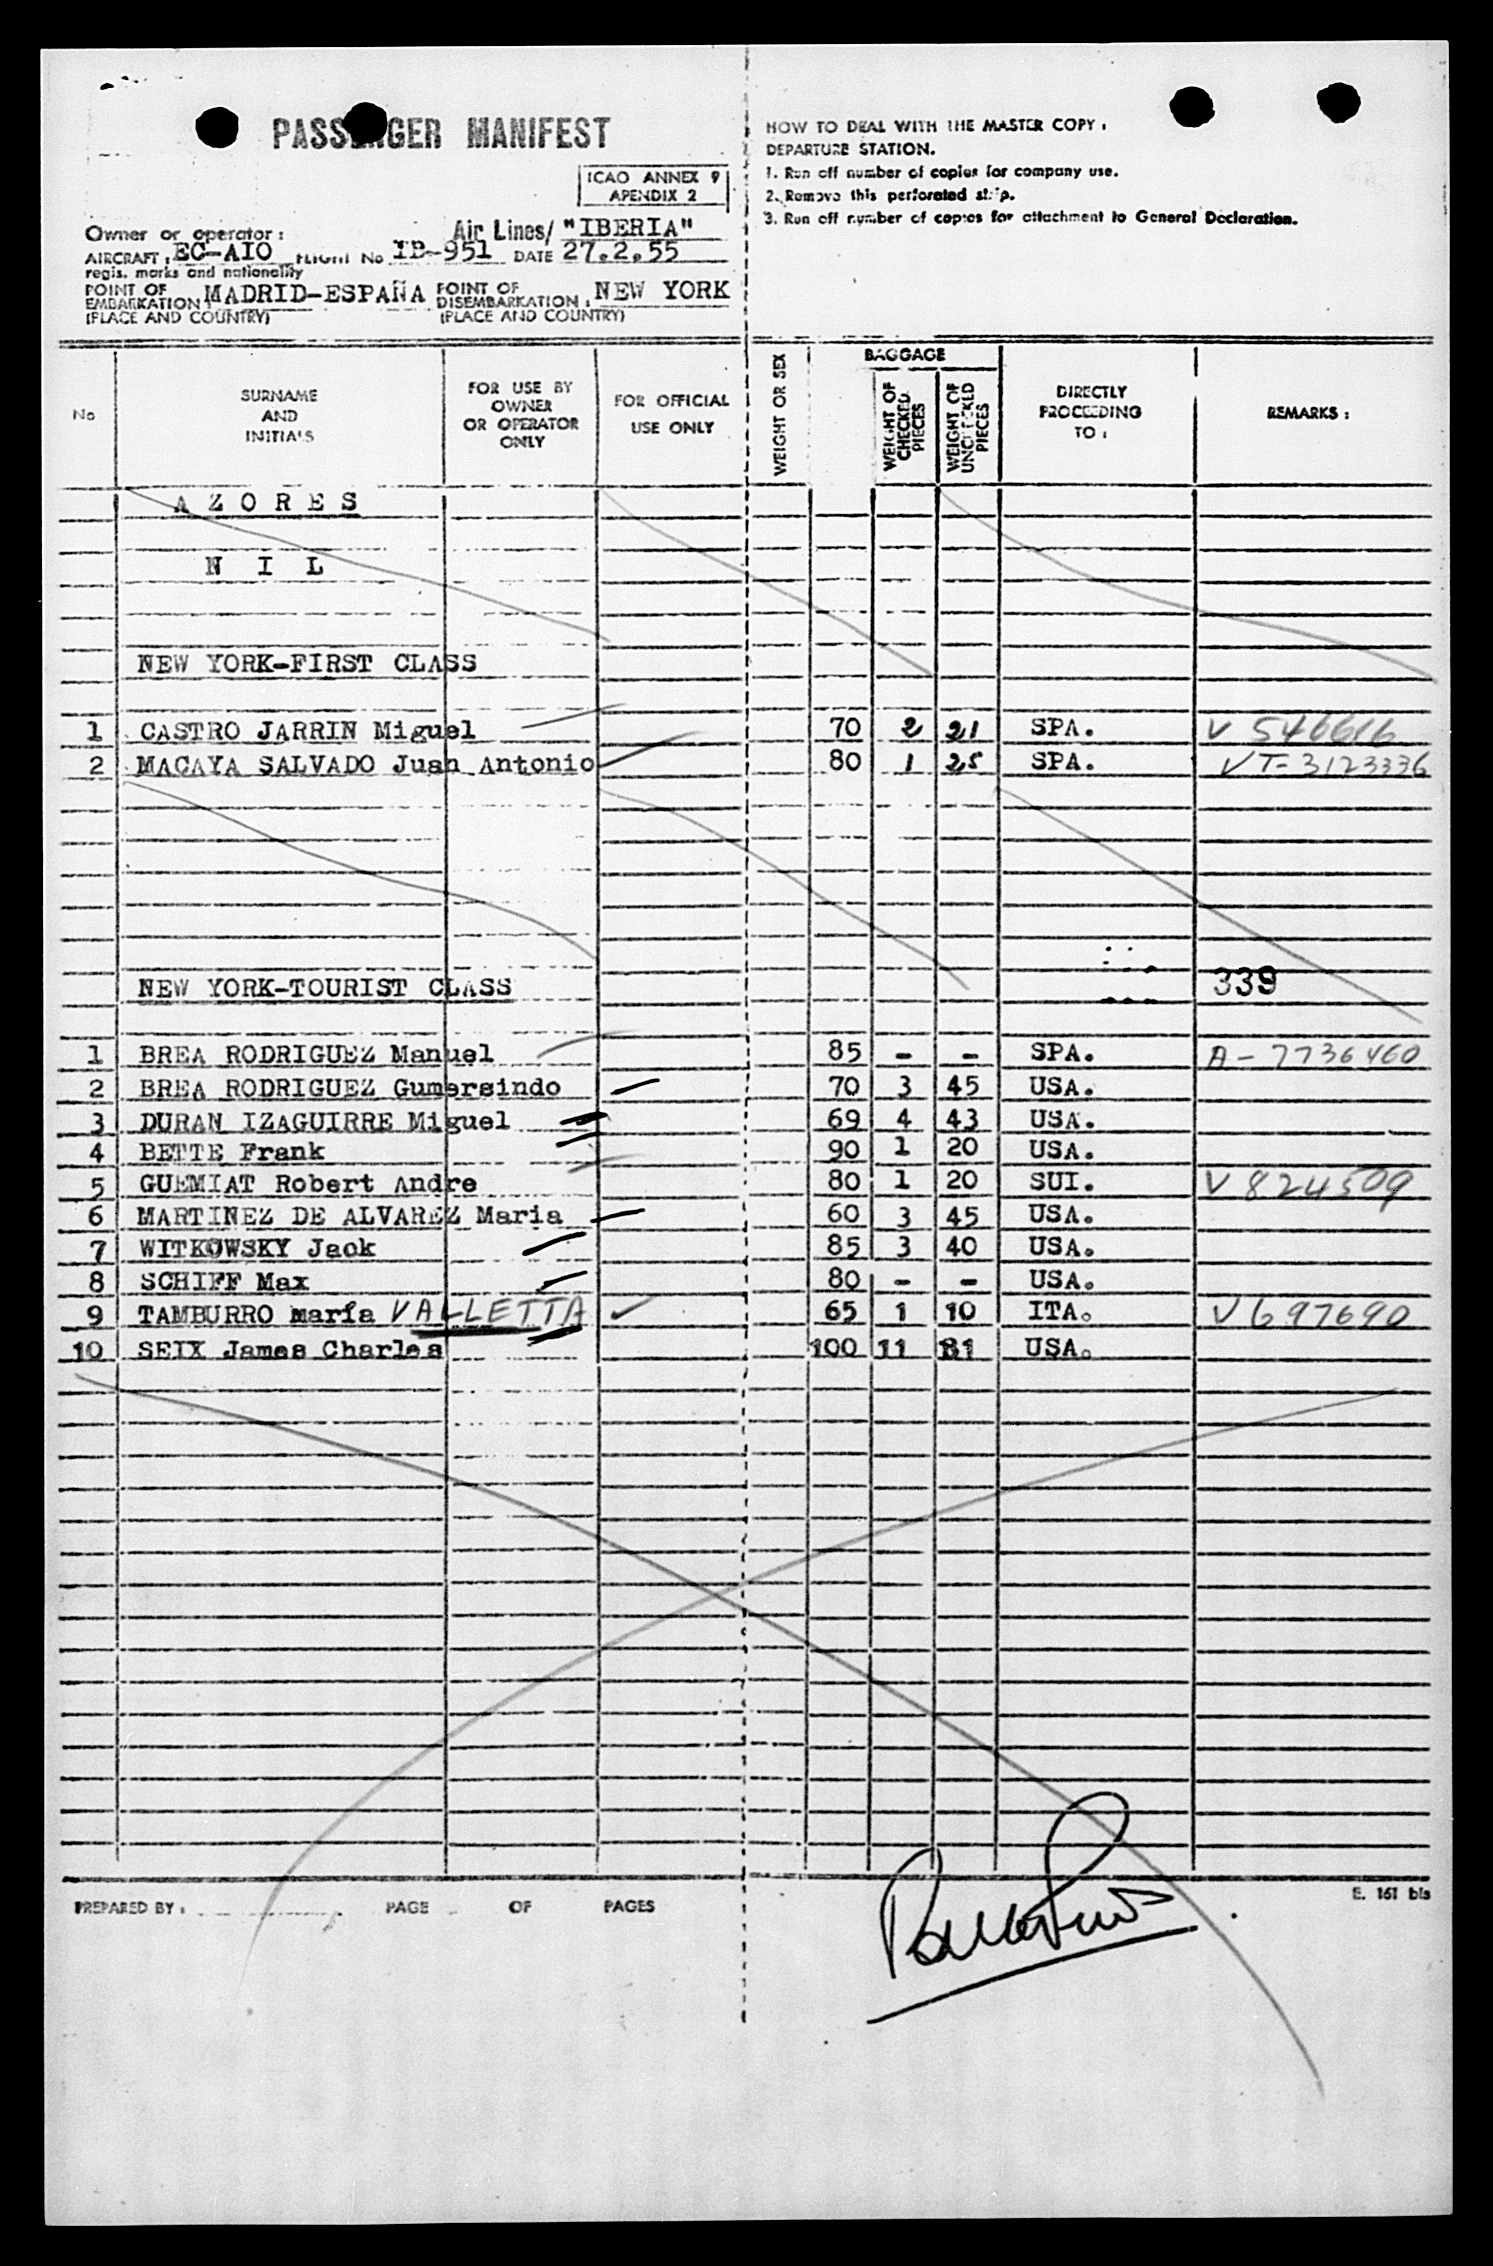 PASSENGER MANIFEST
ICAO ANNEX 9
APENDIX 2
Owner or operator: Air Lines/ "IBERIA"
AIRCRAFT: EC-AIO FLIGHT No IB-951 DATE 27.2.55
regis. marks and nationality
POINT OF EMBARKATION: MADRID-ESPAÑA POINT OF DISEMBARKATION: NEW YORK
(PLACE AND COUNTRY) (PLACE AND COUNTRY)
HOW TO DEAL WITH THE MASTER COPY:
DEPARTURE STATION.
1. Run off number of copies for company use.
2. Remove this perforated strip.
3. Run off number of copies for attachment to General Declaration.
No SURNAME AND INITIALS FOR USE BY OWNER OR OPERATOR ONLY FOR OFFICIAL USE ONLY WEIGHT OR SEX BAGGAGE WEIGHT OF CHECKED PIECES WEIGHT OF UNCHECKED PIECES DIRECTLY PROCEEDING TO: REMARKS:
AZORES
NIL
NEW YORK-FIRST CLASS
1 CASTRO JARRIN Miguel 70 2 21 SPA. V 546616
2 MACAYA SALVADO Juan Antonio 80 1 25 SPA. VT-3123336
NEW YORK-TOURIST CLASS 339
1 BREA RODRIGUEZ Manuel 85 - - SPA. A-7736460
2 BREA RODRIGUEZ Gumersindo 70 3 45 USA.
3 DURAN IZAGUIRRE Miguel 69 4 43 USA.
4 BETTE Frank 90 1 20 USA.
5 GUEMIAT Robert Andre 80 1 20 SUI. V 824509
6 MARTINEZ DE ALVAREZ Maria 60 3 45 USA.
7 WITKOWSKY Jack 85 3 40 USA.
8 SCHIFF Max 80 - - USA.
9 TAMBURRO maría VALLETTA 65 1 10 ITA. V 697690
10 SEIX James Charles 100 11 81 USA.
PREPARED BY: PAGE OF PAGES
E. 161 bis